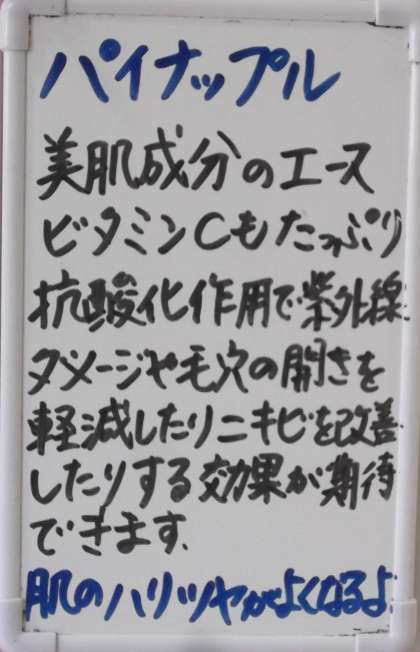 パイナップル
美肌成分のエース
ビタミンCもたっぷり
抗酸化作用で紫外線
ダメージや毛穴の開きを
軽減したりニキビを改善
したりする効果が期待
できます.
肌のハリツヤがよくなるよ